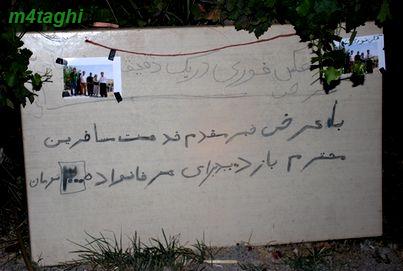 m4taghi
عکس فوری در یک دقیقه
با عرض خیر مقدم خدمت مسافرین
محترم بازدید برای هر خانواده ۳۰۰۰ تومان